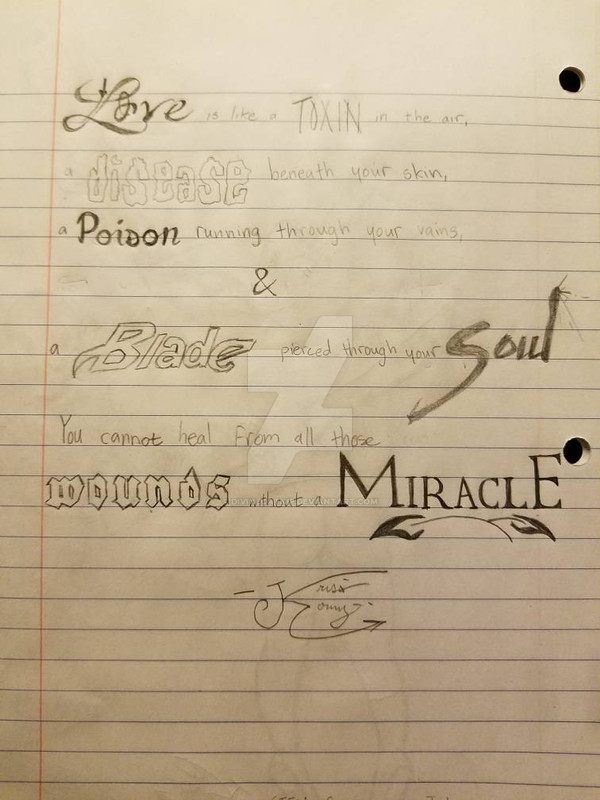 Love is like a TOXIN in the air,
a disease beneath your skin,
a Poison running through your vains,
&
a Blade pierced through your Soul
You cannot heal From all those
wounds without a MIRACLE